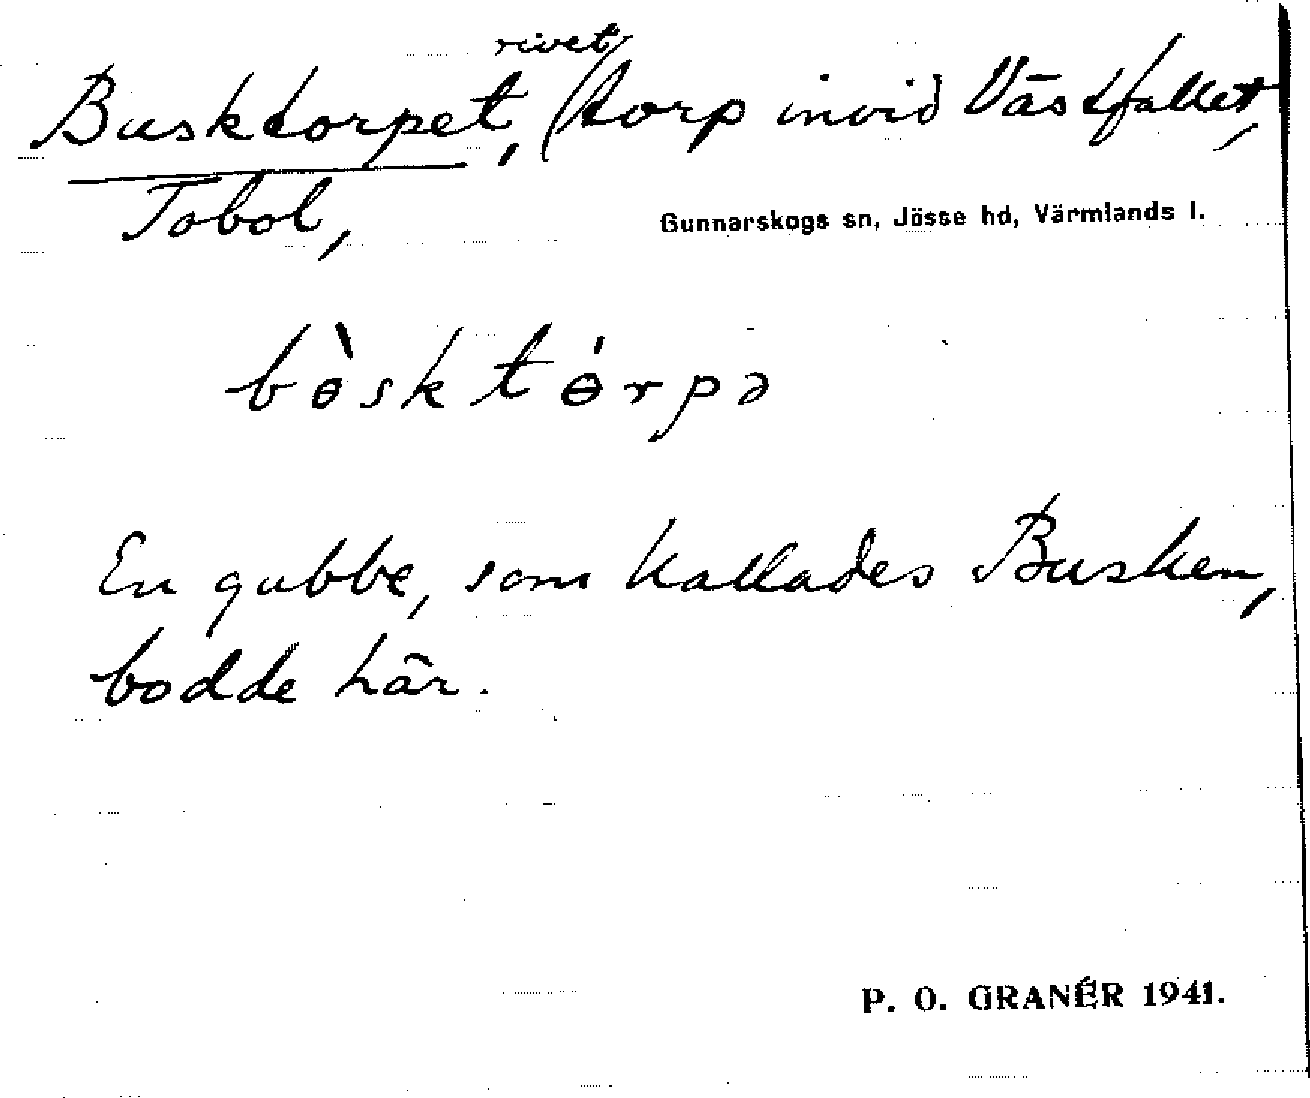 Busktorpet, rivet torp invid Västfallet,
Tobol,
Gunnarskogs sn, Jösse hd, Värmlands l.
bɵ̀sktɵ́rpə
En gubbe, som kallades Busken,
bodde här.
P. O. GRANÉR 1941.